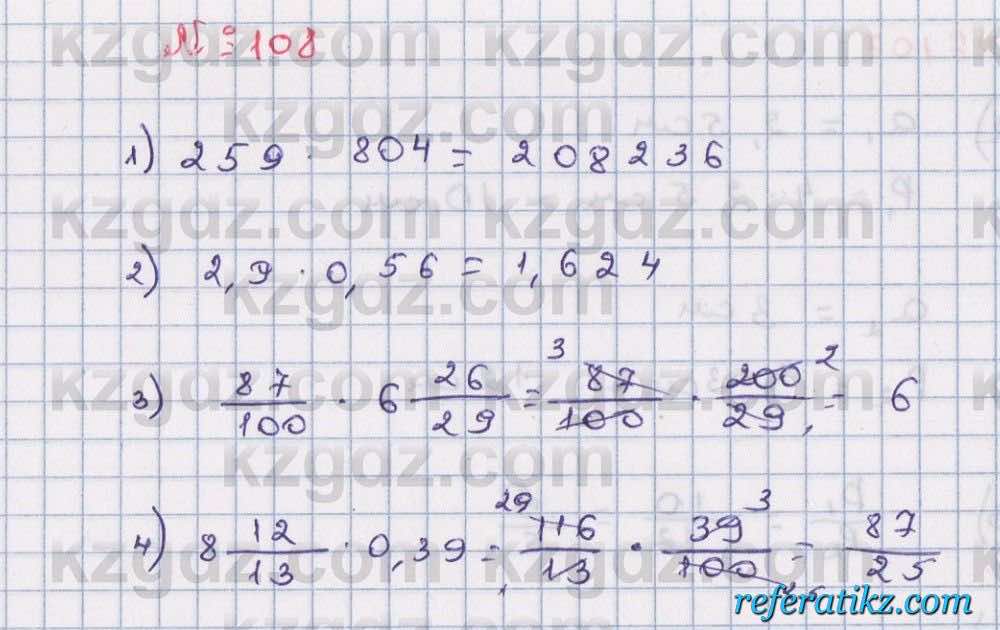 № 108
1) 259 · 804 = 208236
2) 2,9 · 0,56 = 1,624
3) 87/100 · 6 26/29 = 87/100 · 200/29 = 6
4) 8 12/13 · 0,39 = 116/13 · 39/100 = 87/25
kzgdz.com
referatikz.com